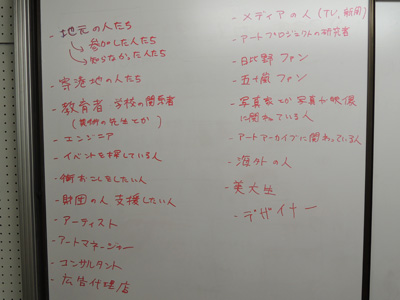 - 地元の人たち
参加した人たち
知らなかった人たち
- 寄港地の人たち
- 教育者 学校の関係者
(美術の先生とか)
- エンジニア
- イベントを探している人
- 街おこしをしたい人
- 財団の人 支援したい人
- アーティスト
- アートマネージャー
- コンサルタント
- 広告代理店
- メディアの人 (TV、新聞)
- アートプロジェクトの研究者
- 日比野ファン
- 五十嵐ファン
- 写真家とか写真や映像
に関わっている人
- アートアーカイブに関わっている人
- 海外の人
- 美大生
- デザイナー